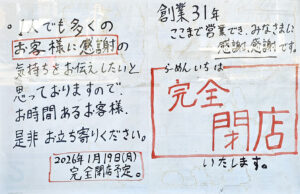 1人でも多くの
お客様に感謝の
気持ちをお伝えしたいと
思っておりますので、
お時間あるお客様、
是非お立ち寄りください。
2026年1月19日(月)
完全閉店予定。
創業31年
ここまで営業でき、みなさまに
感謝、感謝です。
らーめんいちは
完全
閉店
いたします。